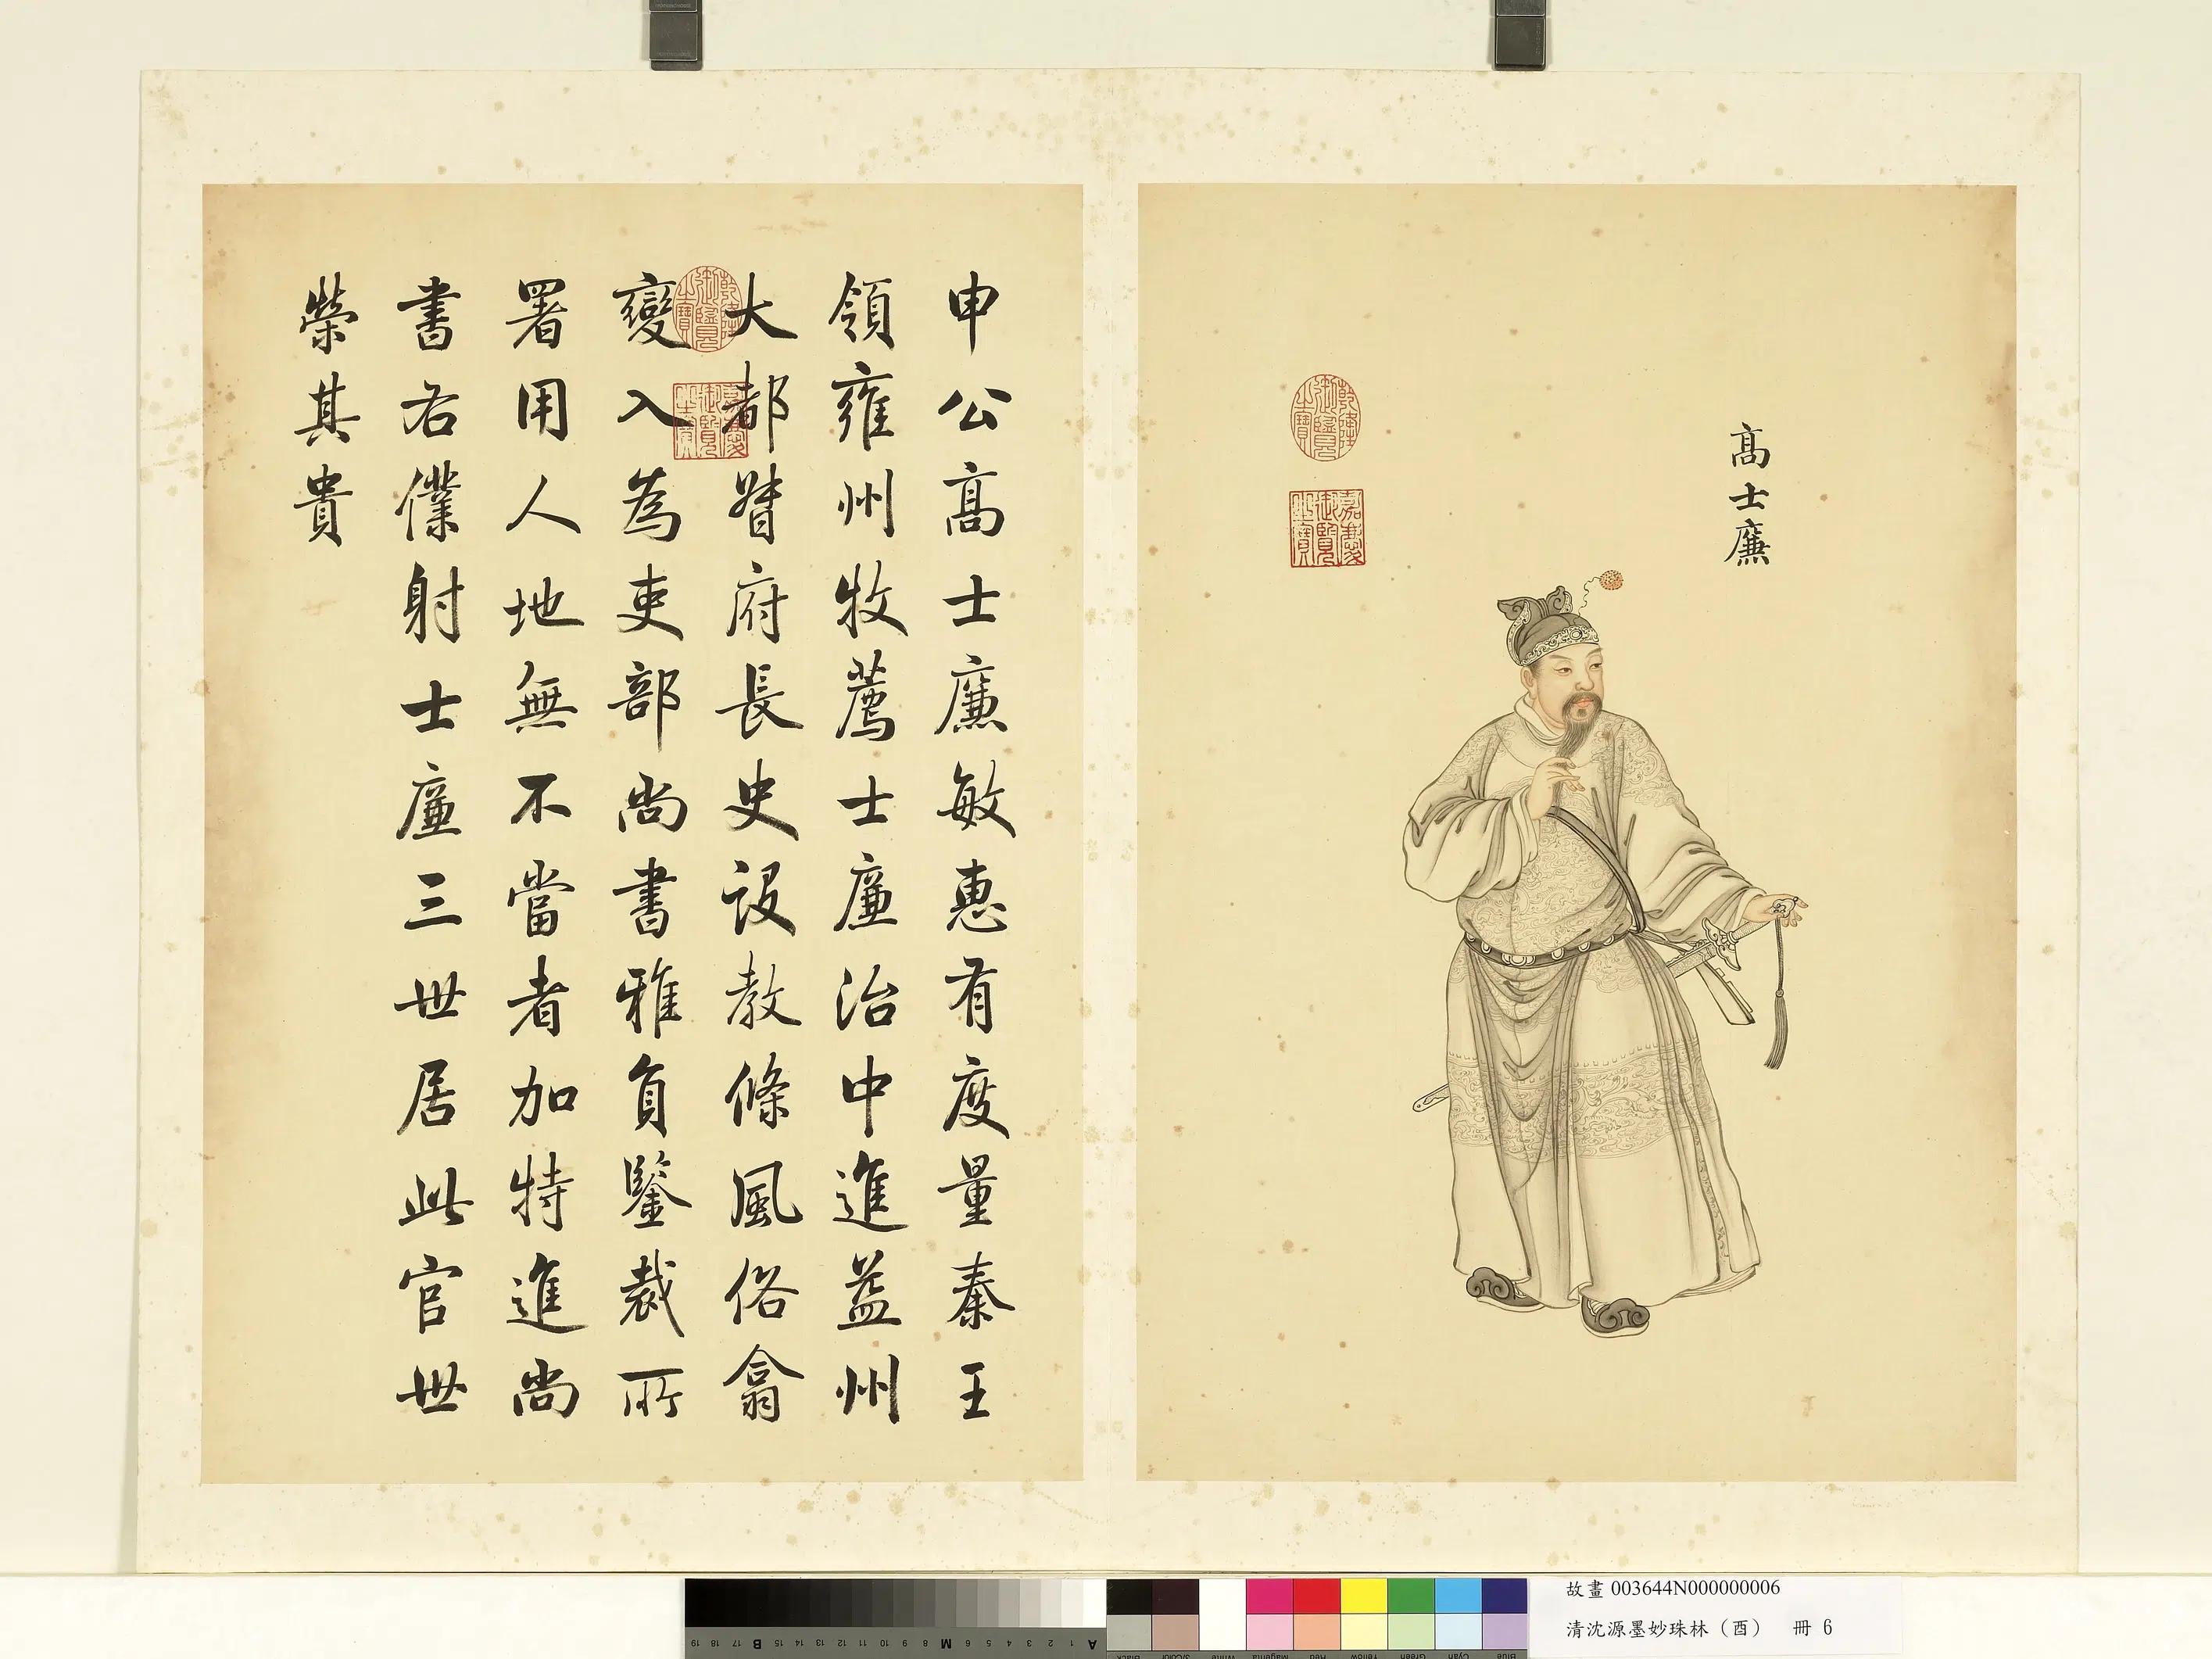 高士廉
乾隆御覽之寶
嘉慶御覽之寶
申公高士廉敏惠有度量秦王
領雍州牧薦士廉治中進益州
大都督府長史設教條風俗翕
變入為吏部尚書雅負鑒裁所
署用人地無不當者加特進尚
書右僕射士廉三世居此官世
榮其貴
乾隆御覽之寶
嘉慶御覽之寶
故畫 003644N000000006
清沈源墨妙珠林（酉） 冊 6
19 18 17 B 15 14 13 12 11 10 9 8 M 6 5 4 3 2 1 A
Black 3/Color White Magenta Red Yellow Green Cyan Blue